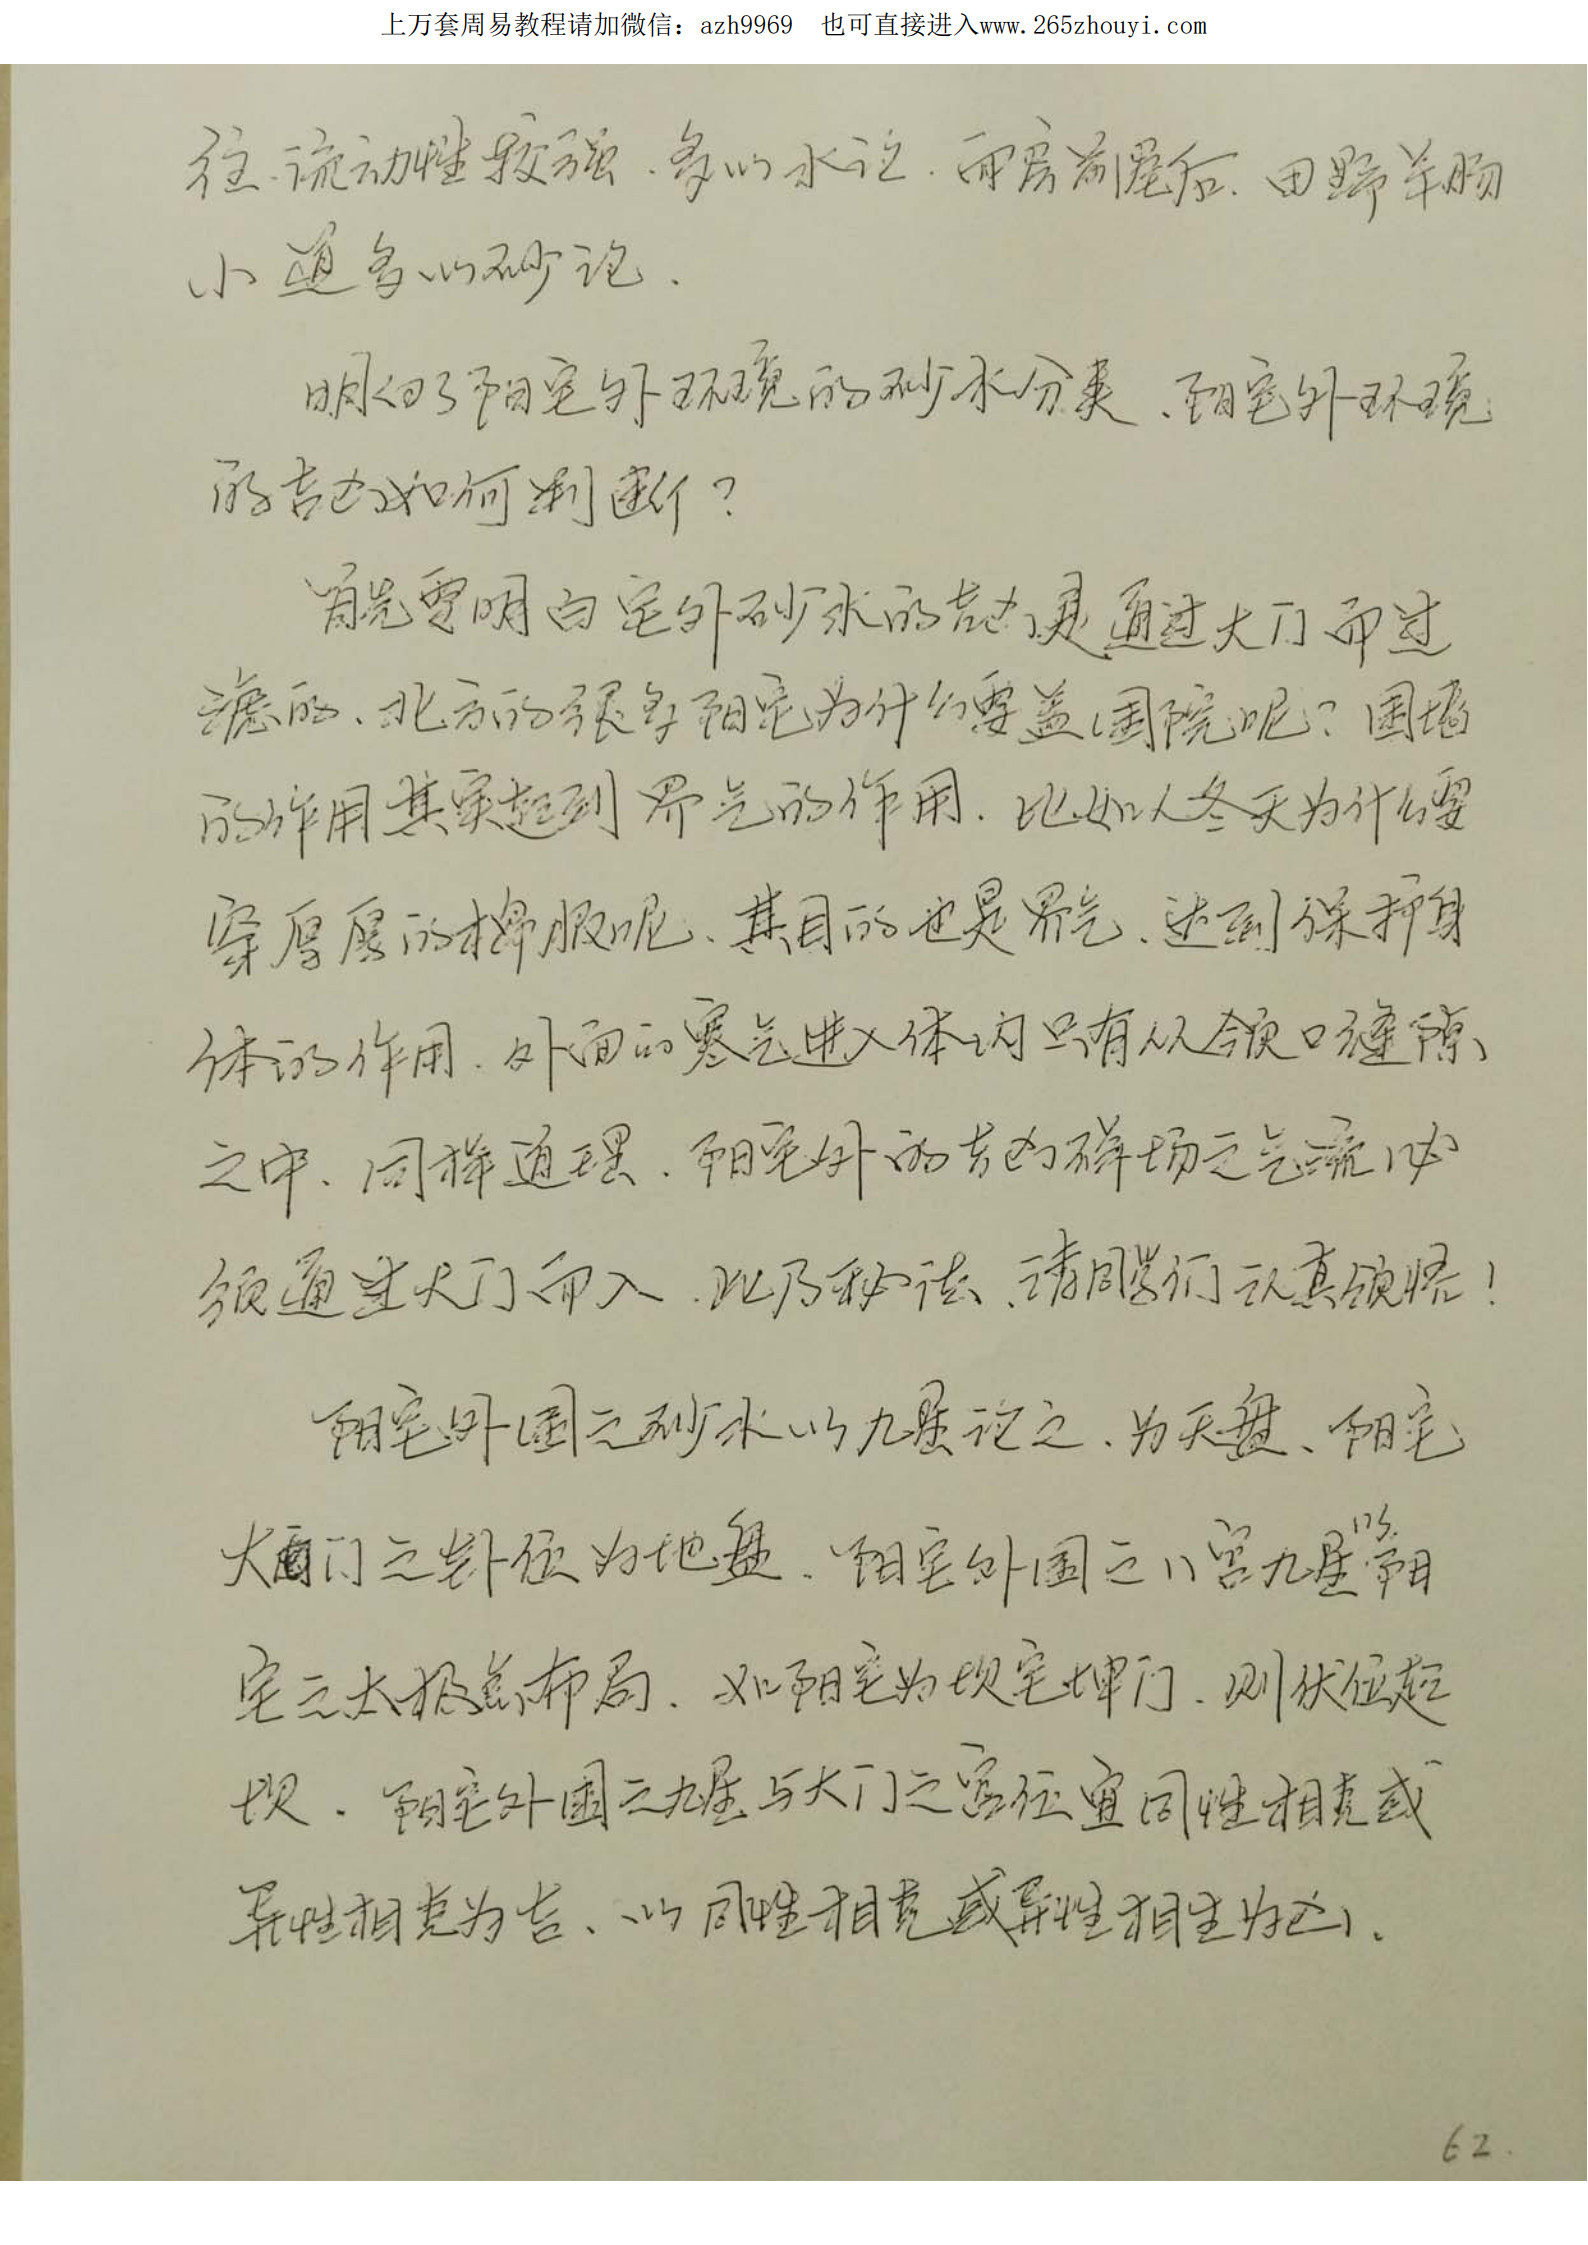 上万套周易教程请加微信：azh9969 也可直接进入www.265zhouyi.com
往、流动性较强、多以水论、而房前屋后、田野羊肠
小道多以砂论．
明白了阳宅外环境的砂水分类、阳宅外环境
的吉凶如何判断？
首先要明白宅外砂水的吉凶是通过大门而过
滤的、北方的很多阳宅为什么要盖围院呢？围墙
的作用其实起到界气的作用．比如人冬天为什么要
穿厚厚的棉服呢、其目的也是界气、达到保护身
体的作用．外面的寒气进入体内只有从领口缝隙
之中、同样道理、阳宅外的吉凶磁场之气流必
须通过大门而入．此乃秘法、请同学们认真领悟！
阳宅外围之砂水以九星论之、为天盘、阳宅
大门之卦位为地盘．阳宅外围之八宫九星以阳
宅之太极点布局．如阳宅为坎宅坤门．则伏位起
坎．阳宅外围之九星与大门之宫位宜同性相克或
异性相克为吉、以同性相克或异性相生为凶．
62.